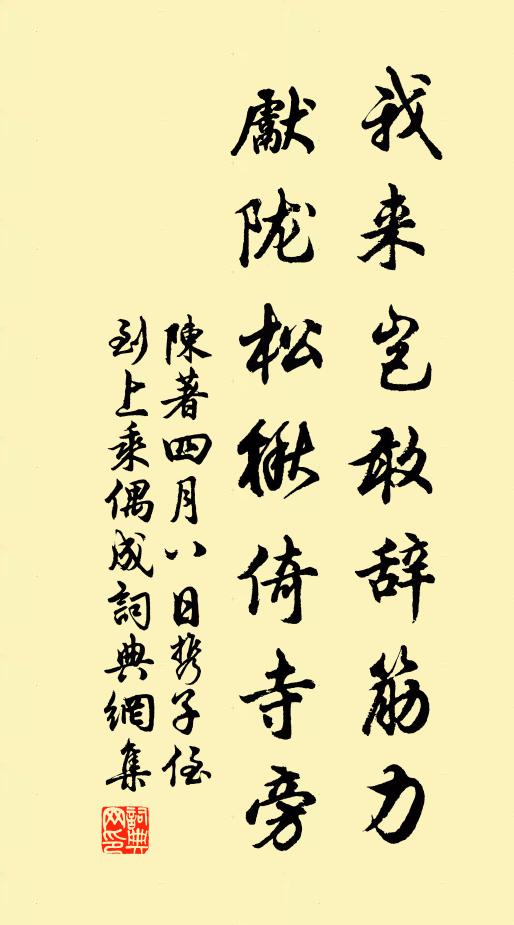 我来岂敢辞筋力
献陇松楸倚寺旁
陳著四月八日携子侄
到上乘偶成詞典網集
詞典網印